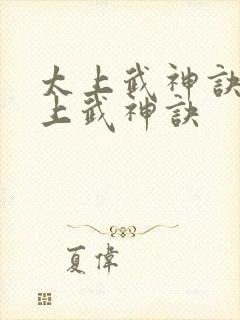 太上武神訣
上武神訣
夏偉